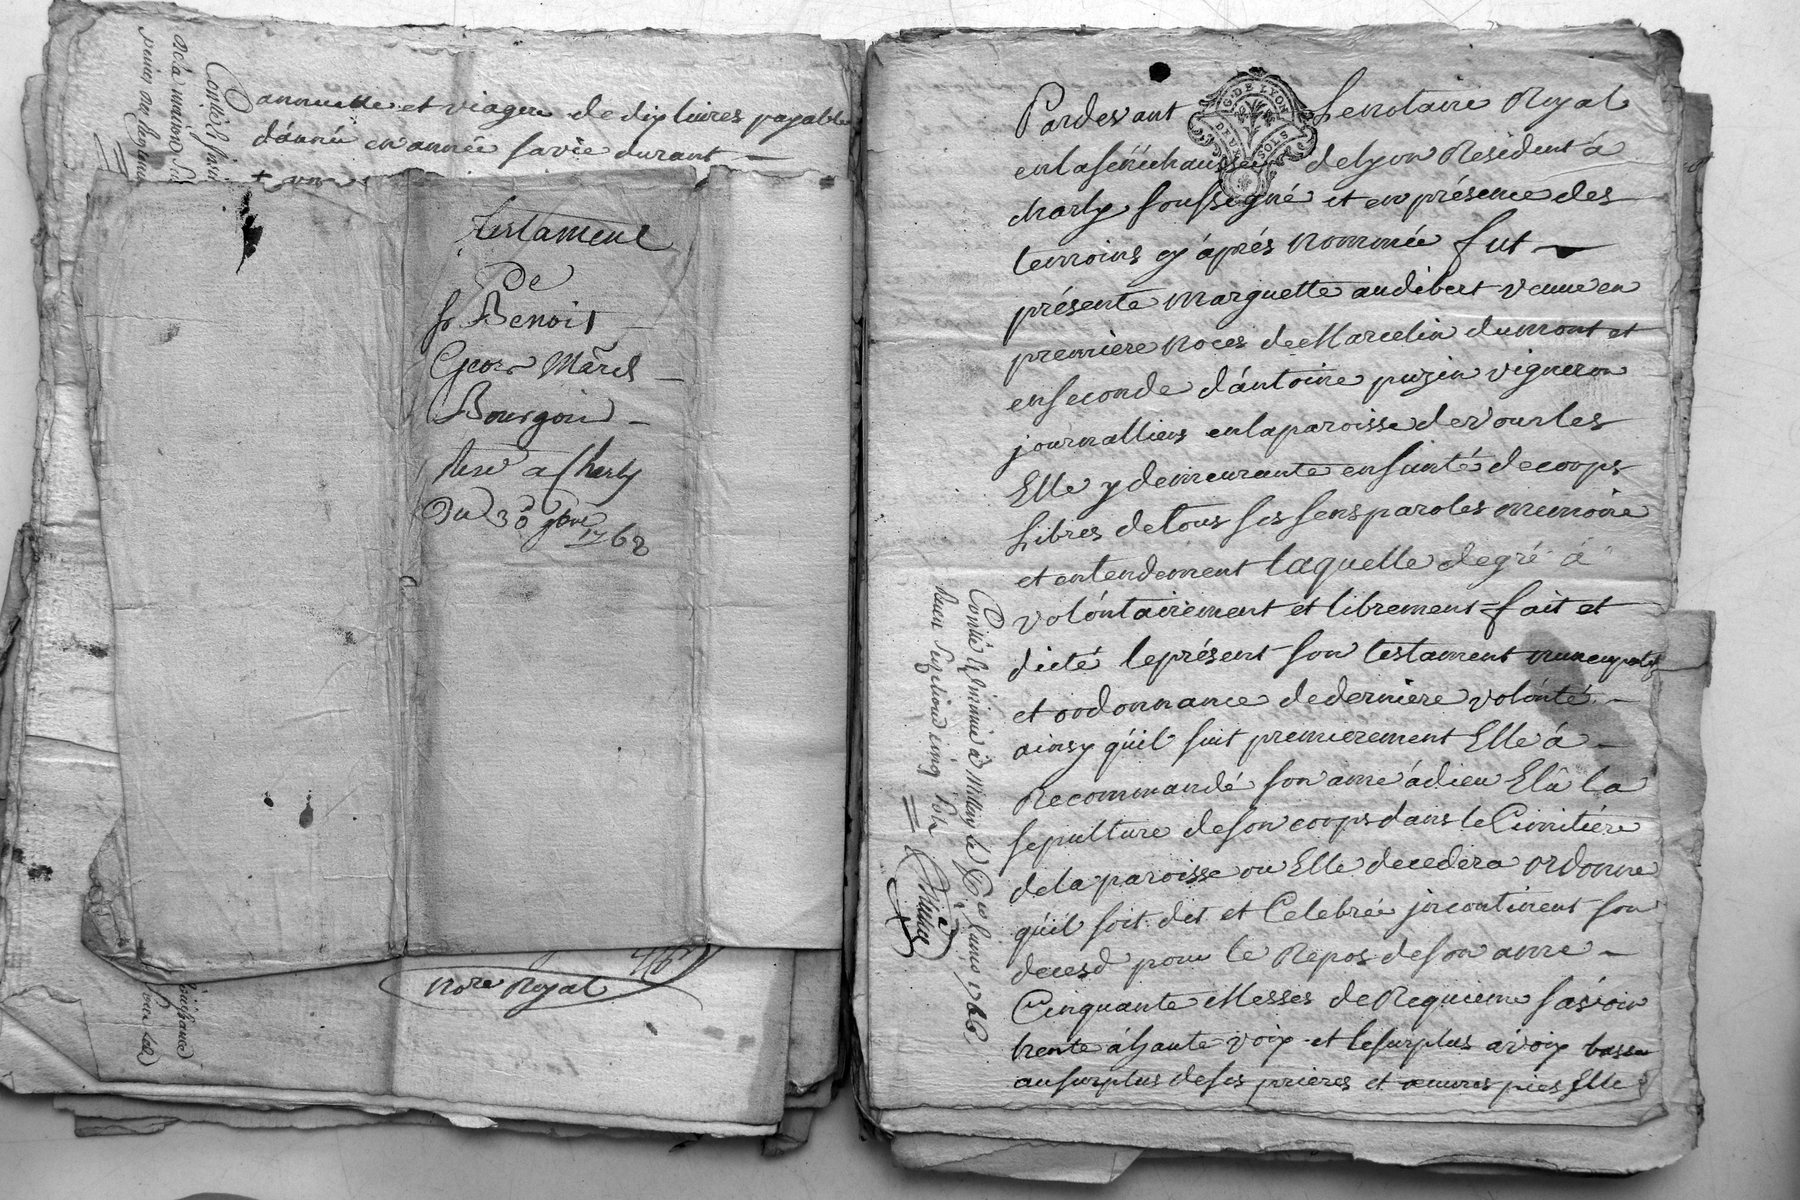 annuelle et viagere de dix livres payable
d'année en année sa vie durant
testament
De
Sr Benoit
Bourgoin
a Charly
Du 30 9bre
1768
Nore Royal
G. DE LYON
DEUX SOLS
Pardevant Le notaire Royal
en la sénéchaussée de lyon Resident à
charly soussigné et en présence des
temoins cy après nommée fut
présente Marguette audibert veuve en
premiere noces de Marcelin dumont et
en seconde d'ántoine puzin vigneron
journalliers en la paroisse de vourles
Elle y demeurante en santé de corps
Libres de tous ses sens paroles memoire
et entendement laquelle de gré à
volóntairement et librement fait et
dicté le présent son testament nuncupatif
et ordonnance de derniere volónté
ainsy qu'il suit premierement Elle á
Recommandé son ame á dieu Elû la
sepulture de son corps dans le Cimitiére
de la paroisse ou Elle decedera ordonne
qu'il soit dit et Celebrée jncontinent son
deces d pour le Repos de son ame
Cinquante Messes de Requiem sávoir
trente á haute voix et le surplus a voix basse
au surplus de ses prieres et œuvres pies Elle
Contrôlé à Millery le juin 1766
Reçu